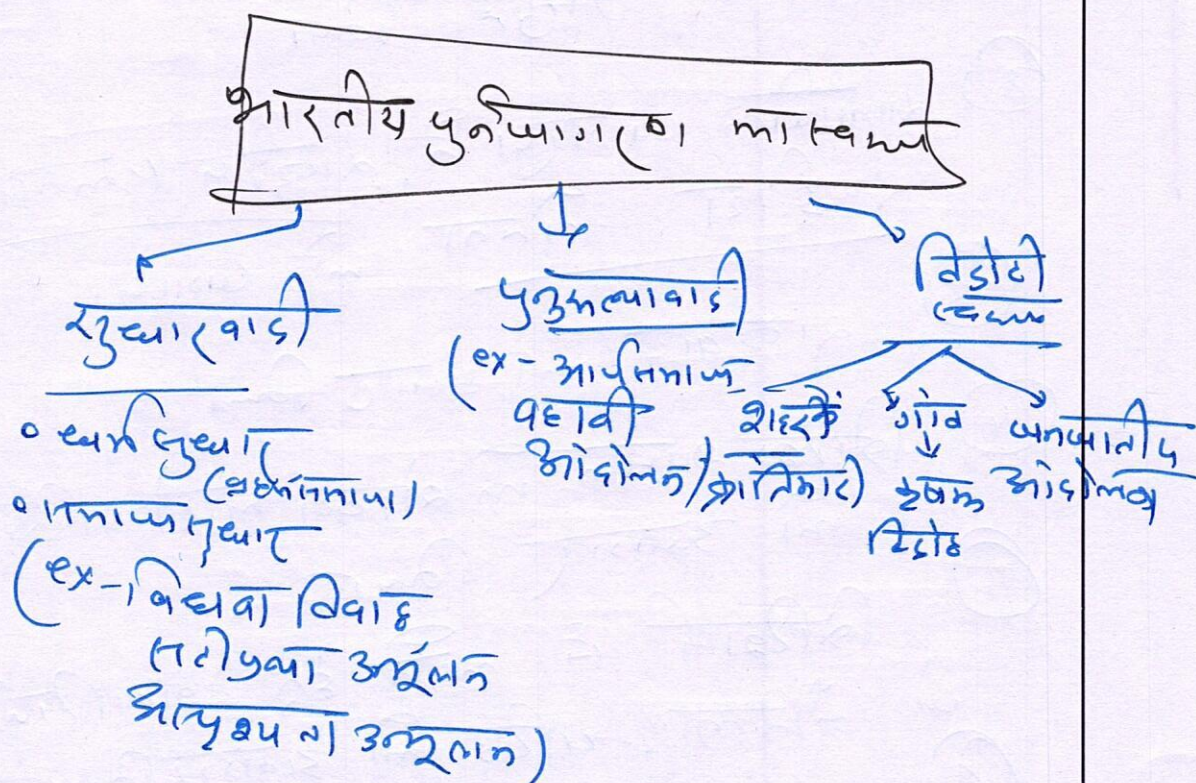 भारतीय पुर्नजागरण का स्वरूप
सुधारवादी
० धर्म सुधार
(ब्रह्मसमाज)
० समाज सुधार
(ex- विधवा विवाह
सतीप्रथा उन्मूलन
अस्पृश्यता उन्मूलन)
पुनुरुत्थावादी
(ex- आर्यसमाज
वहावी
आंदोलन)
विद्रोही
स्वरूप
शहर के
क्रांतिकारी
गांव
कृषक
विद्रोह
जनजातीय
आंदोलन